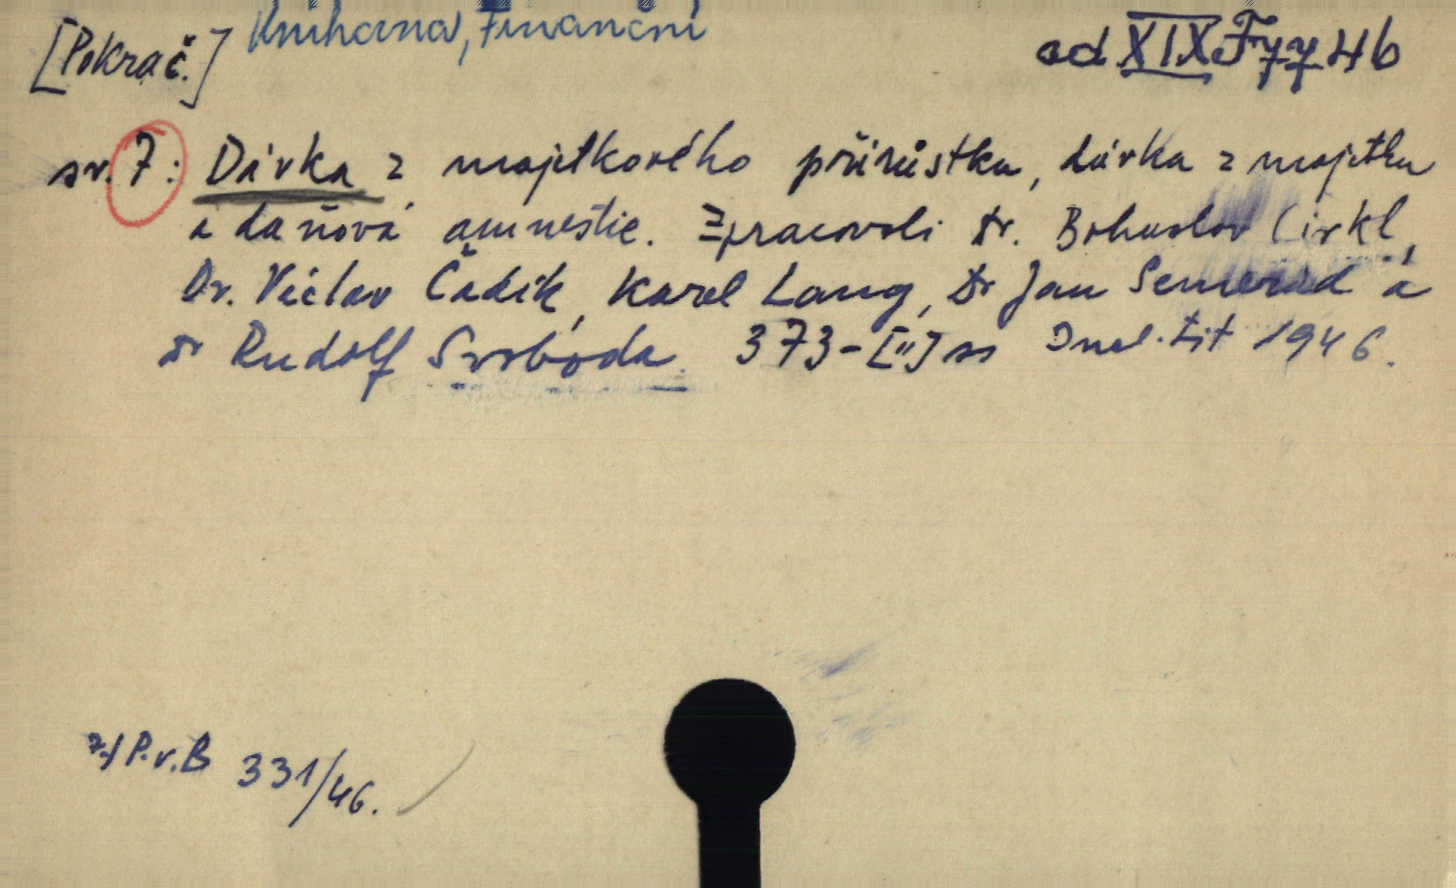 [Pokrač.] Knihovna, Finanční
ad XIX F 77 46
sv. 7: Dávka z majetkového přírůstku, dávka z majetku
a daňová amnestie. Zpracovali Dr. Bohuslav Cirkl,
Dr. Václav Čadík, Karel Lang, Dr Jan Semerád a
Dr Rudolf Svoboda. 373-[II] ss 1946.
7./ P.v.B 331/46.